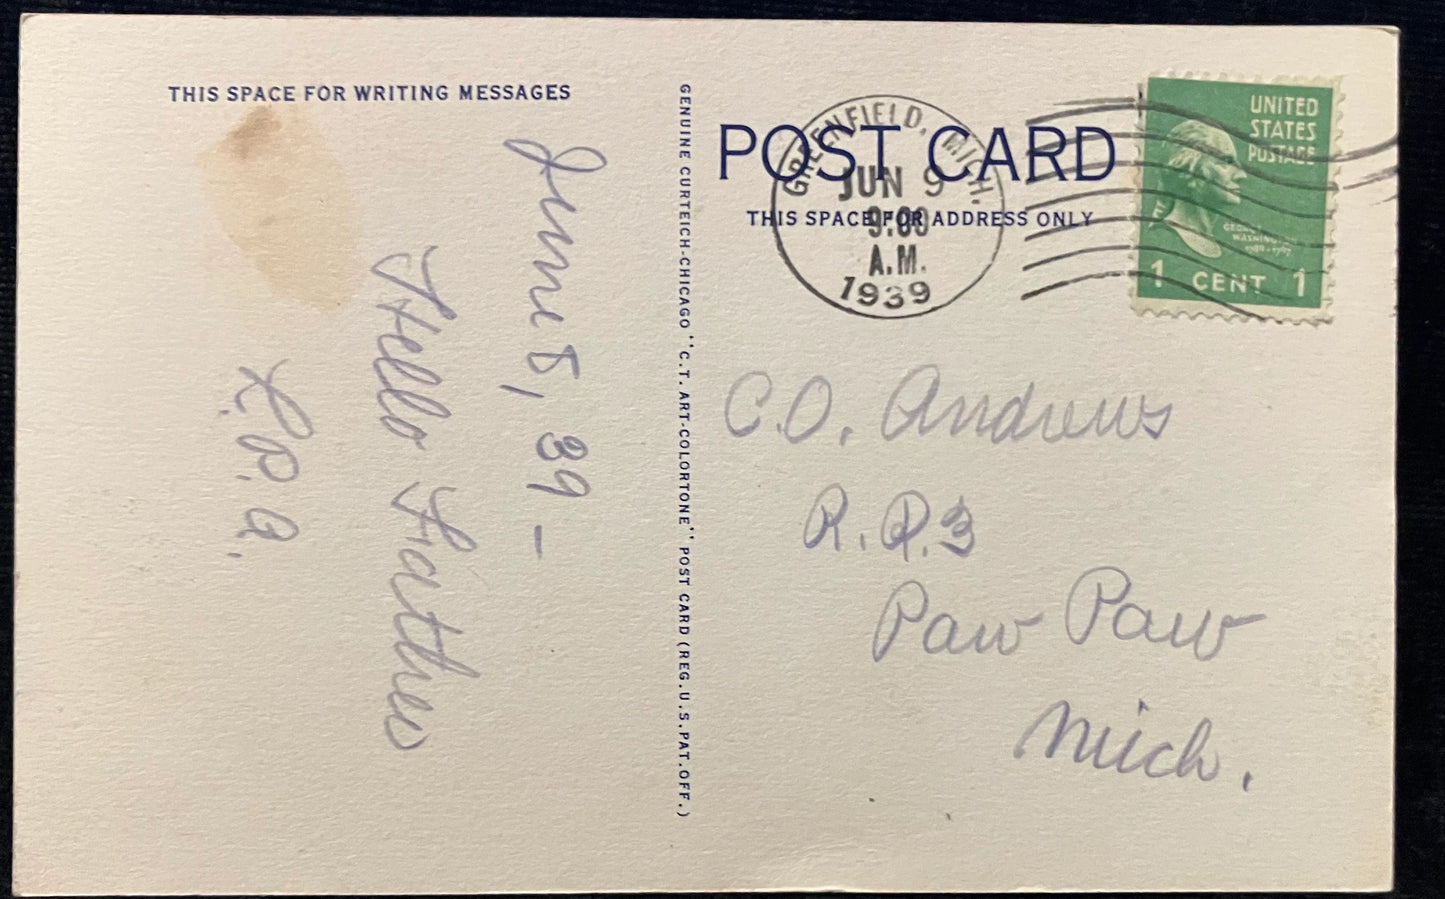 THIS SPACE FOR WRITING MESSAGES
June 5, 39 –
Hello Father
L.P.A.
GENUINE CURTEICH-CHICAGO "C.T. ART-COLORTONE" POST CARD (REG. U.S. PAT. OFF.)
POST CARD
THIS SPACE FOR ADDRESS ONLY
GREENFIELD, MICH.
JUN 9
9:00
A.M.
1939
UNITED
STATES
POSTAGE
GEORGE
WASHINGTON
1789-1797
1 CENT 1
C.O. Andrews
R.R.3
Paw Paw
Mich.